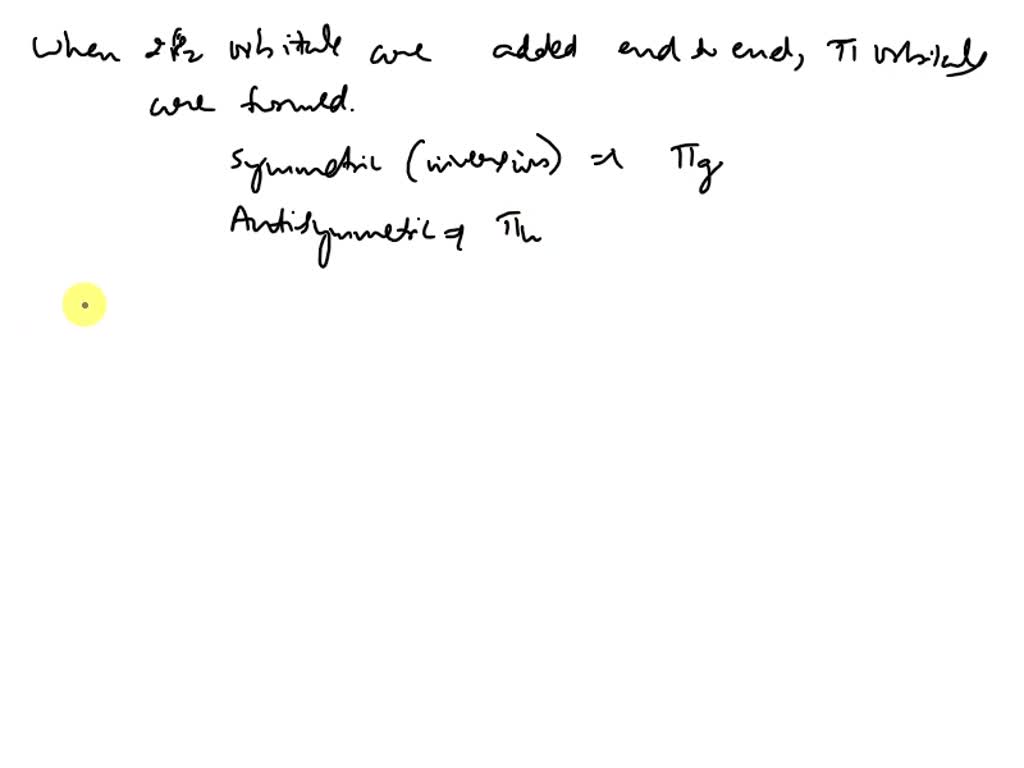 When 2Pz orbitals are added end to end, π orbitals
are formed.
Symmetric (inversion) ⇒ πg
Antisymmetric ⇒ πu